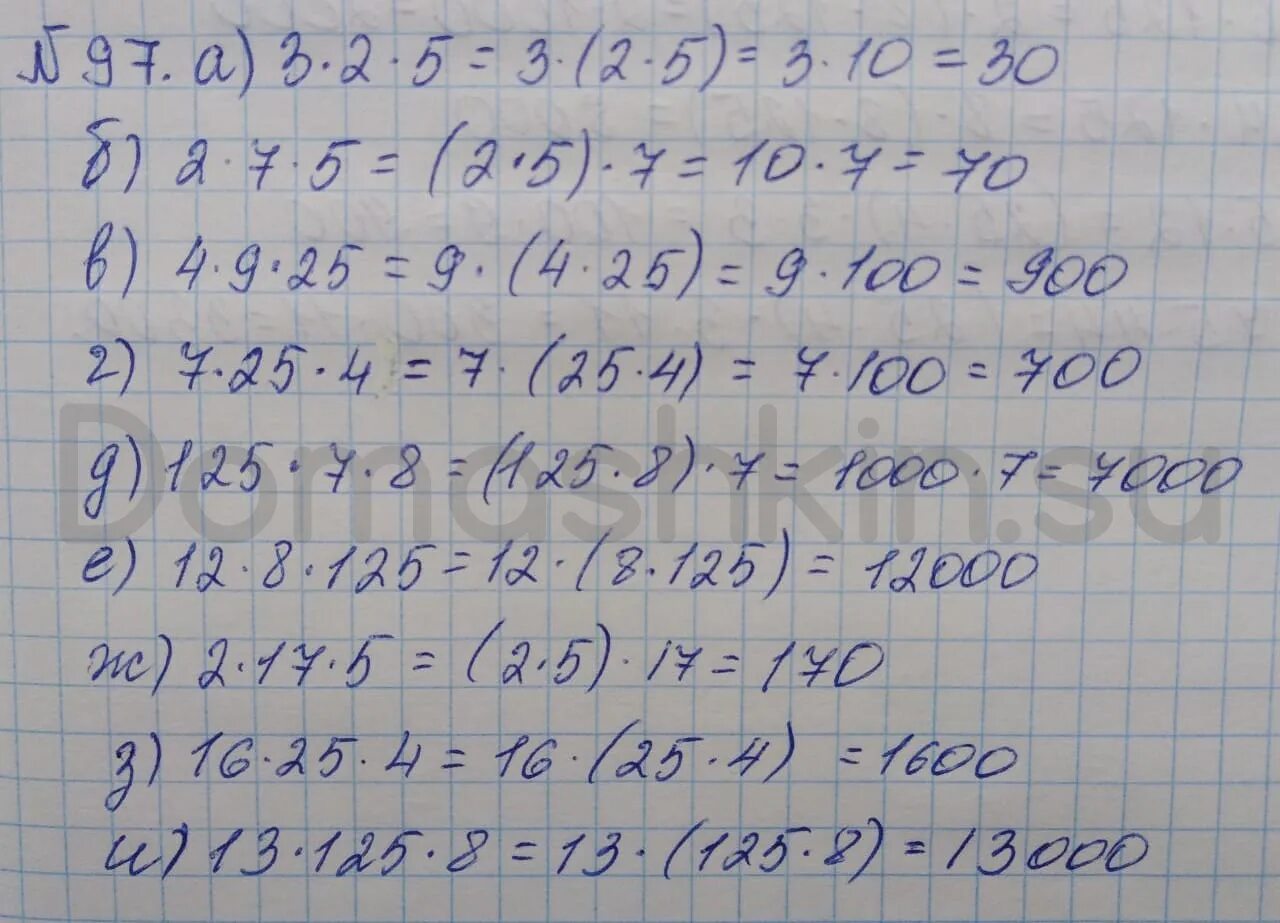 №97. а) 3·2·5 = 3·(2·5) = 3·10 = 30
б) 2·7·5 = (2·5)·7 = 10·7 = 70
в) 4·9·25 = 9·(4·25) = 9·100 = 900
г) 7·25·4 = 7·(25·4) = 7·100 = 700
д) 125·7·8 = (125·8)·7 = 1000·7 = 7000
Domashkin.su
е) 12·8·125 = 12·(8·125) = 12000
ж) 2·17·5 = (2·5)·17 = 170
з) 16·25·4 = 16·(25·4) = 1600
и) 13·125·8 = 13·(125·8) = 13000